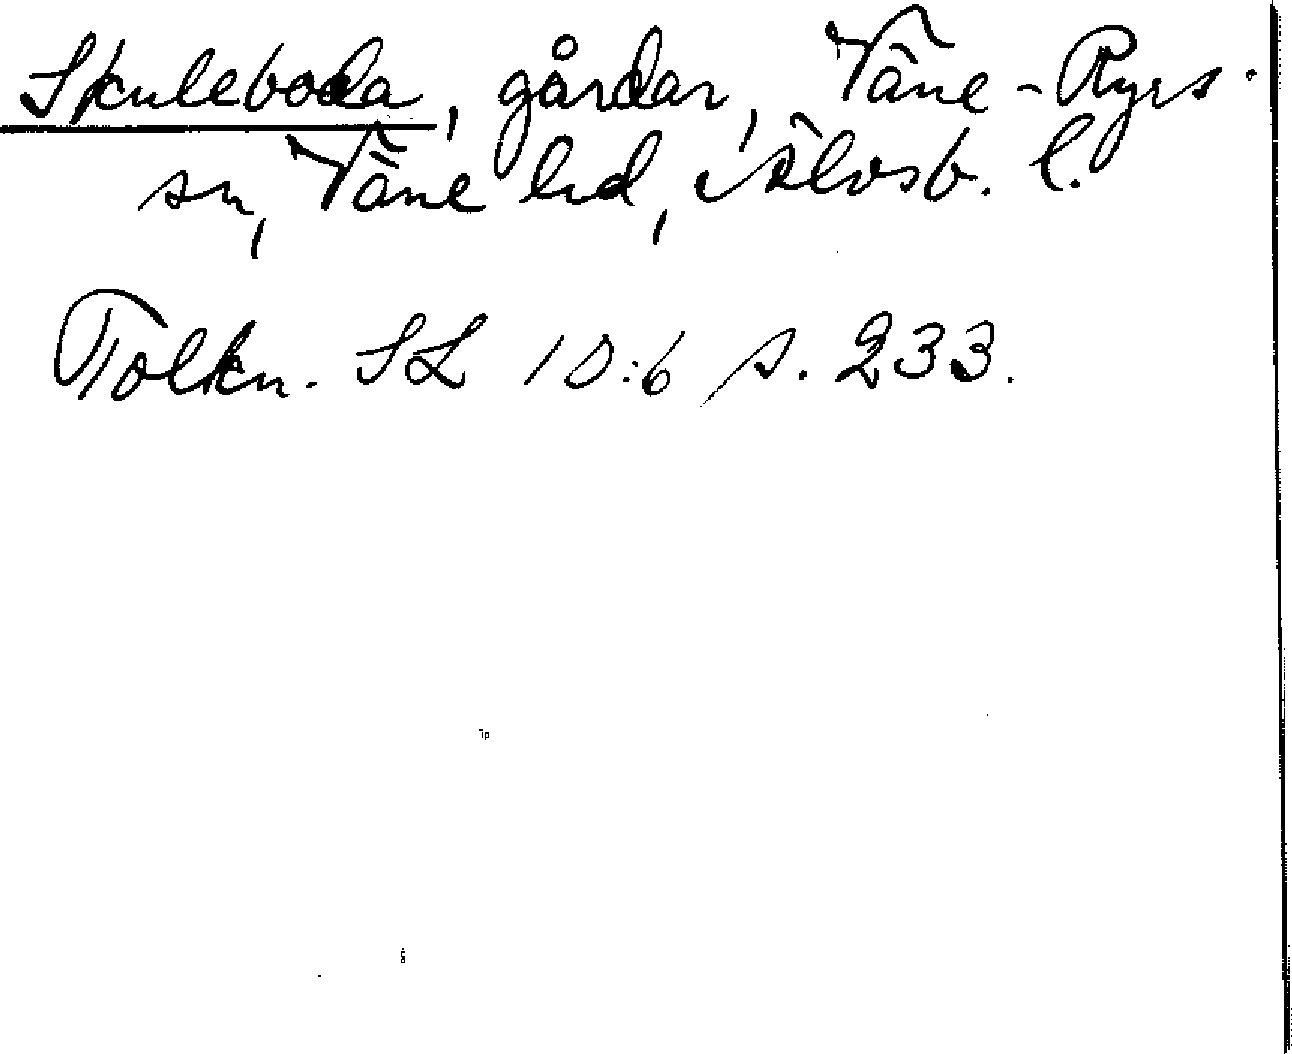 Skuleboda, gårdar, Väne-Ryrs
sn, Väne hd, Älvsb. l.
Tolkn. SL 10:6 s. 233.